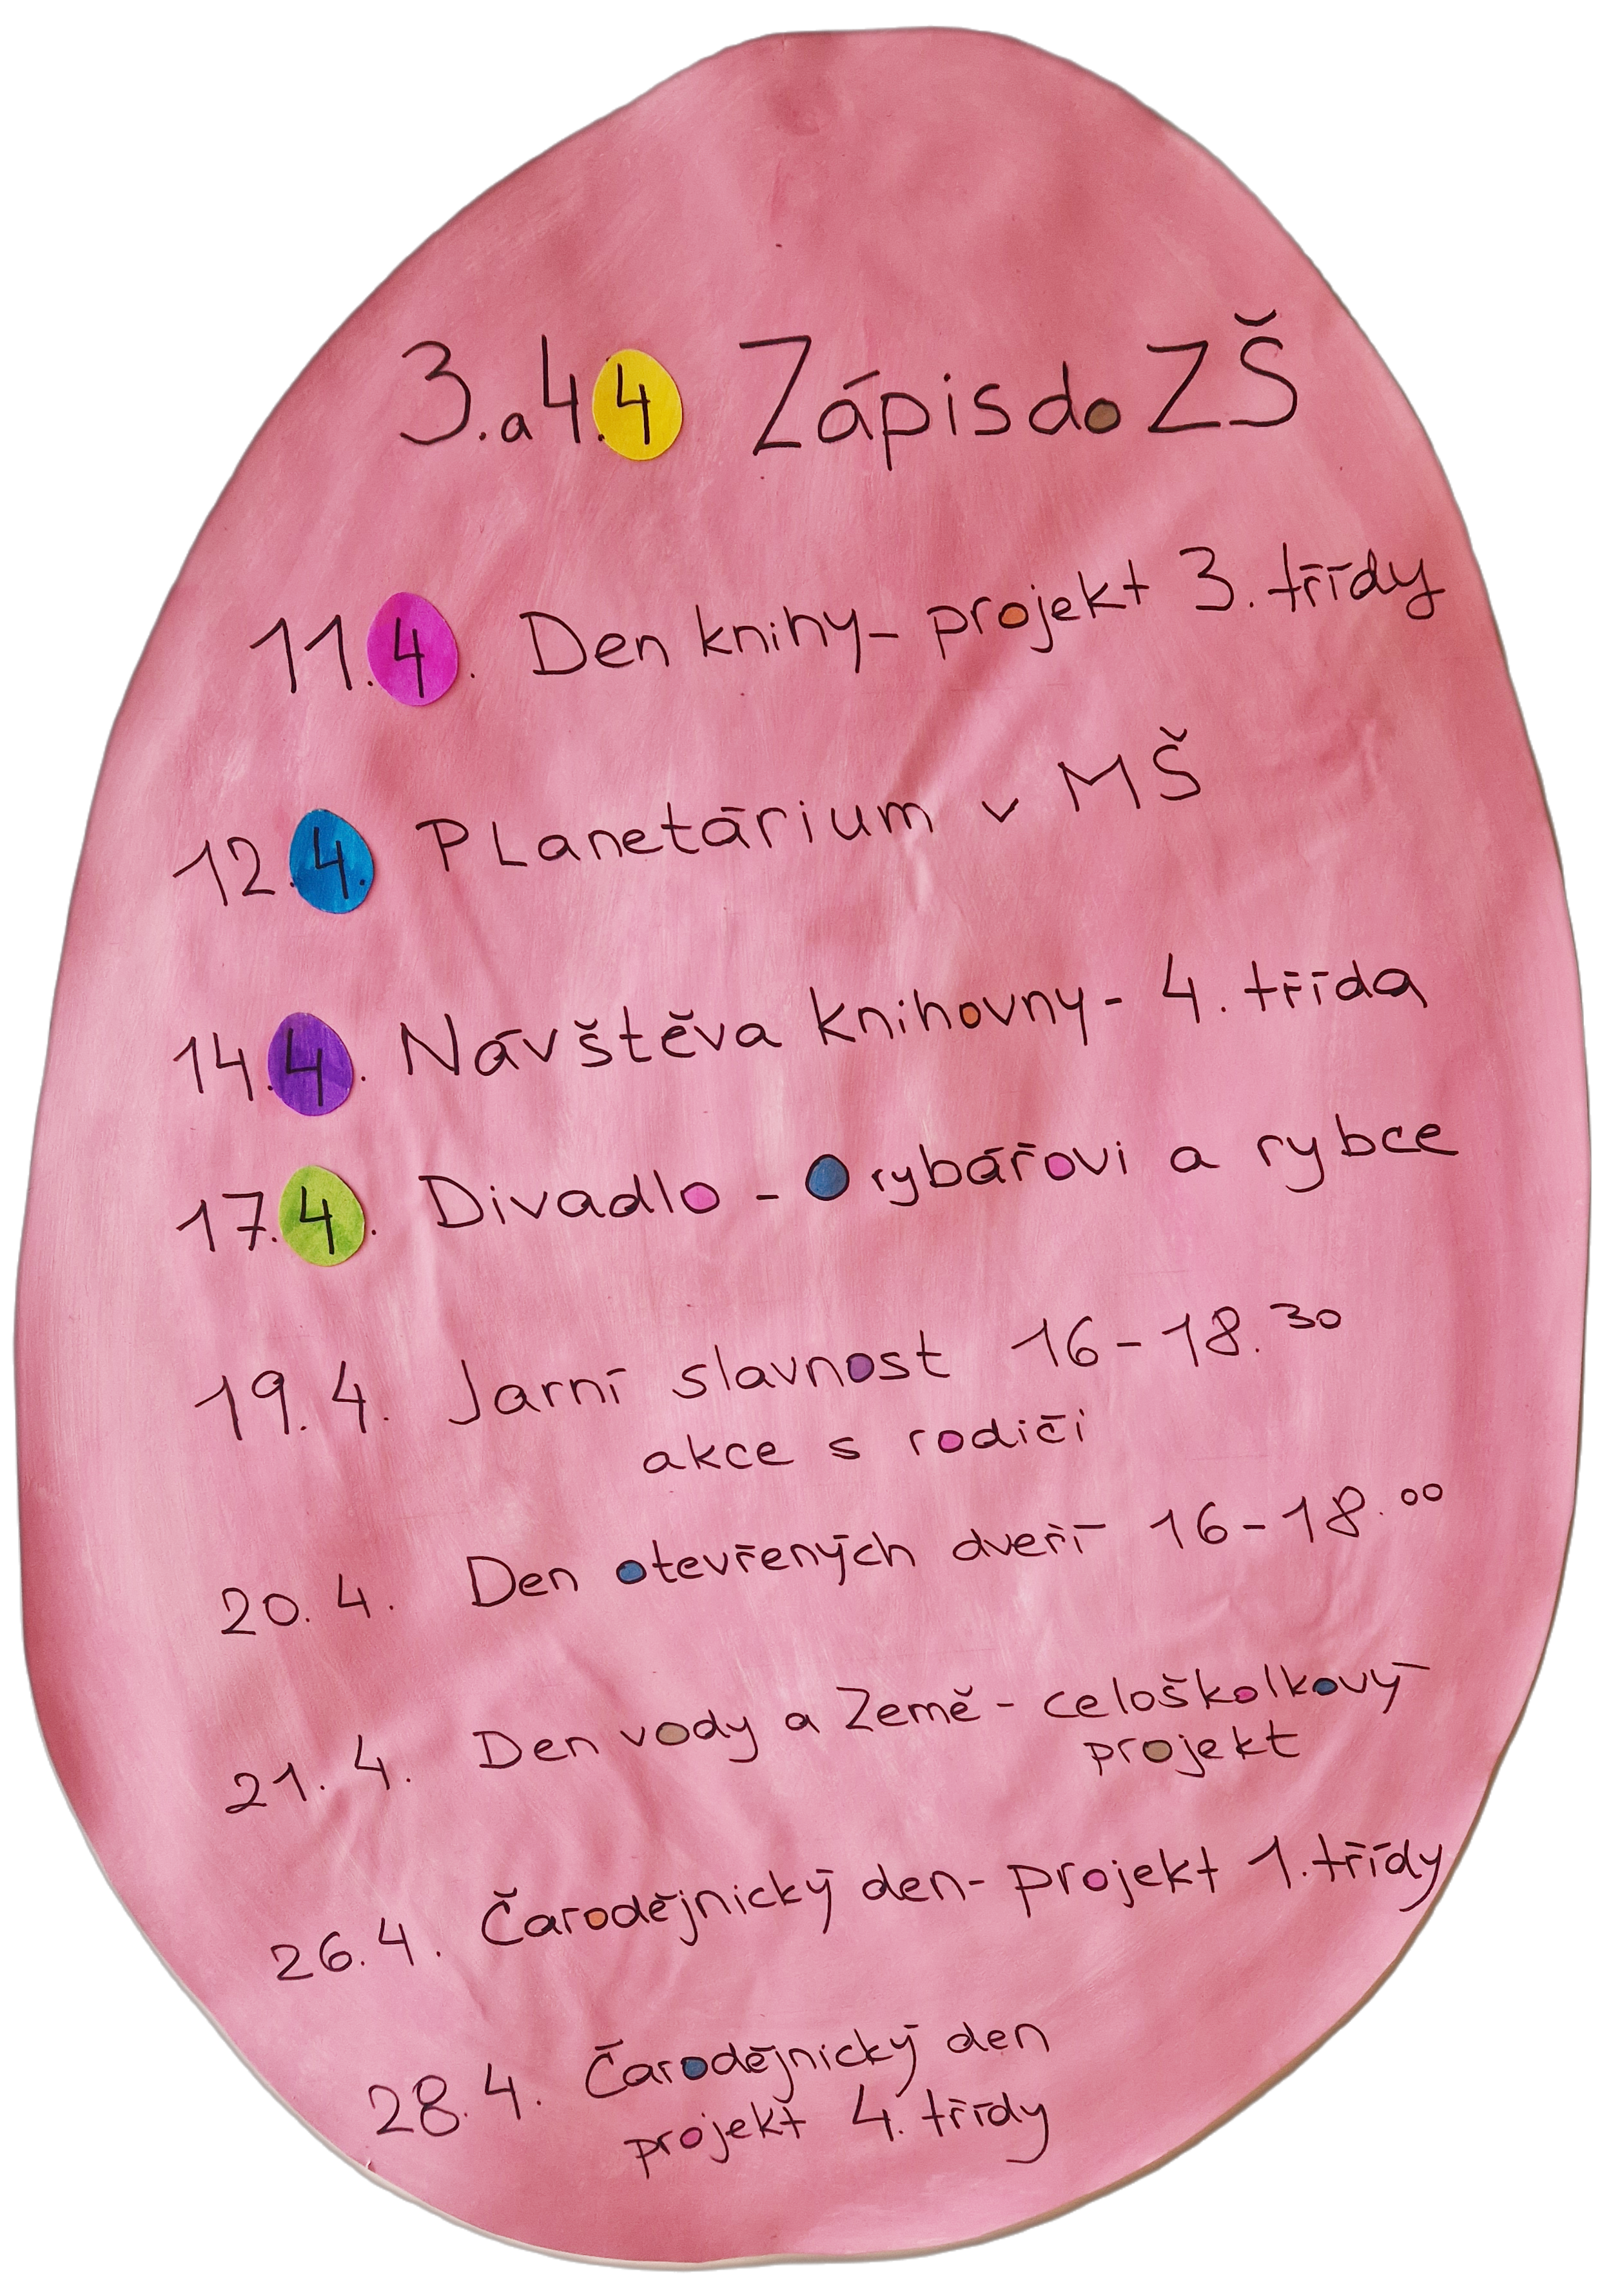 3. a 4.4 Zápis do ZŠ
11.4. Den knihy - projekt 3. třídy
12.4. Planetárium v MŠ
14.4. Návštěva knihovny - 4. třída
17.4. Divadlo - O rybářovi a rybce
19.4. Jarní slavnost 16-18.30
akce s rodiči
20.4. Den otevřených dveří 16-18.00
21.4. Den vody a Země - celoškolkový
projekt
26.4. Čarodějnický den - projekt 1. třídy
28.4. Čarodějnický den
projekt 4. třídy